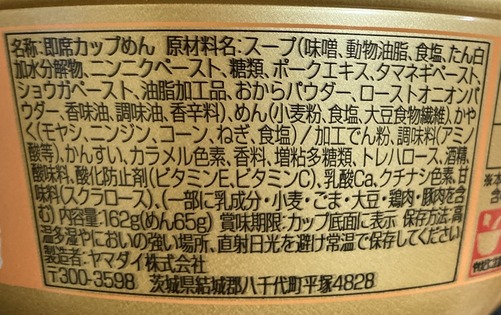 名称:即席カップめん 原材料名:スープ(味噌、動物油脂、食塩、たん白
加水分解物、ニンニクペースト、糖類、ポークエキス、タマネギペースト、
ショウガペースト、油脂加工品、おからパウダー、ローストオニオンパ
ウダー、香味油、調味油、香辛料)、めん(小麦粉、食塩、大豆食物繊維)、かや
く(モヤシ、ニンジン、コーン、ねぎ、食塩)/加工でん粉、調味料(アミノ
酸等)、かんすい、カラメル色素、香料、増粘多糖類、トレハロース、酒精、
酸味料、酸化防止剤(ビタミンE、ビタミンC)、乳酸Ca、クチナシ色素、甘
味料(スクラロース)、(一部に乳成分・小麦・ごま・大豆・鶏肉・豚肉を含
む) 内容量:162g(めん65g) 賞味期限:カップ底面に表示 保存方法:高
温多湿やにおいの強い場所、直射日光を避け常温で保存してください
製造者:ヤマダイ株式会社
〒300-3598 茨城県結城郡八千代町平塚4828